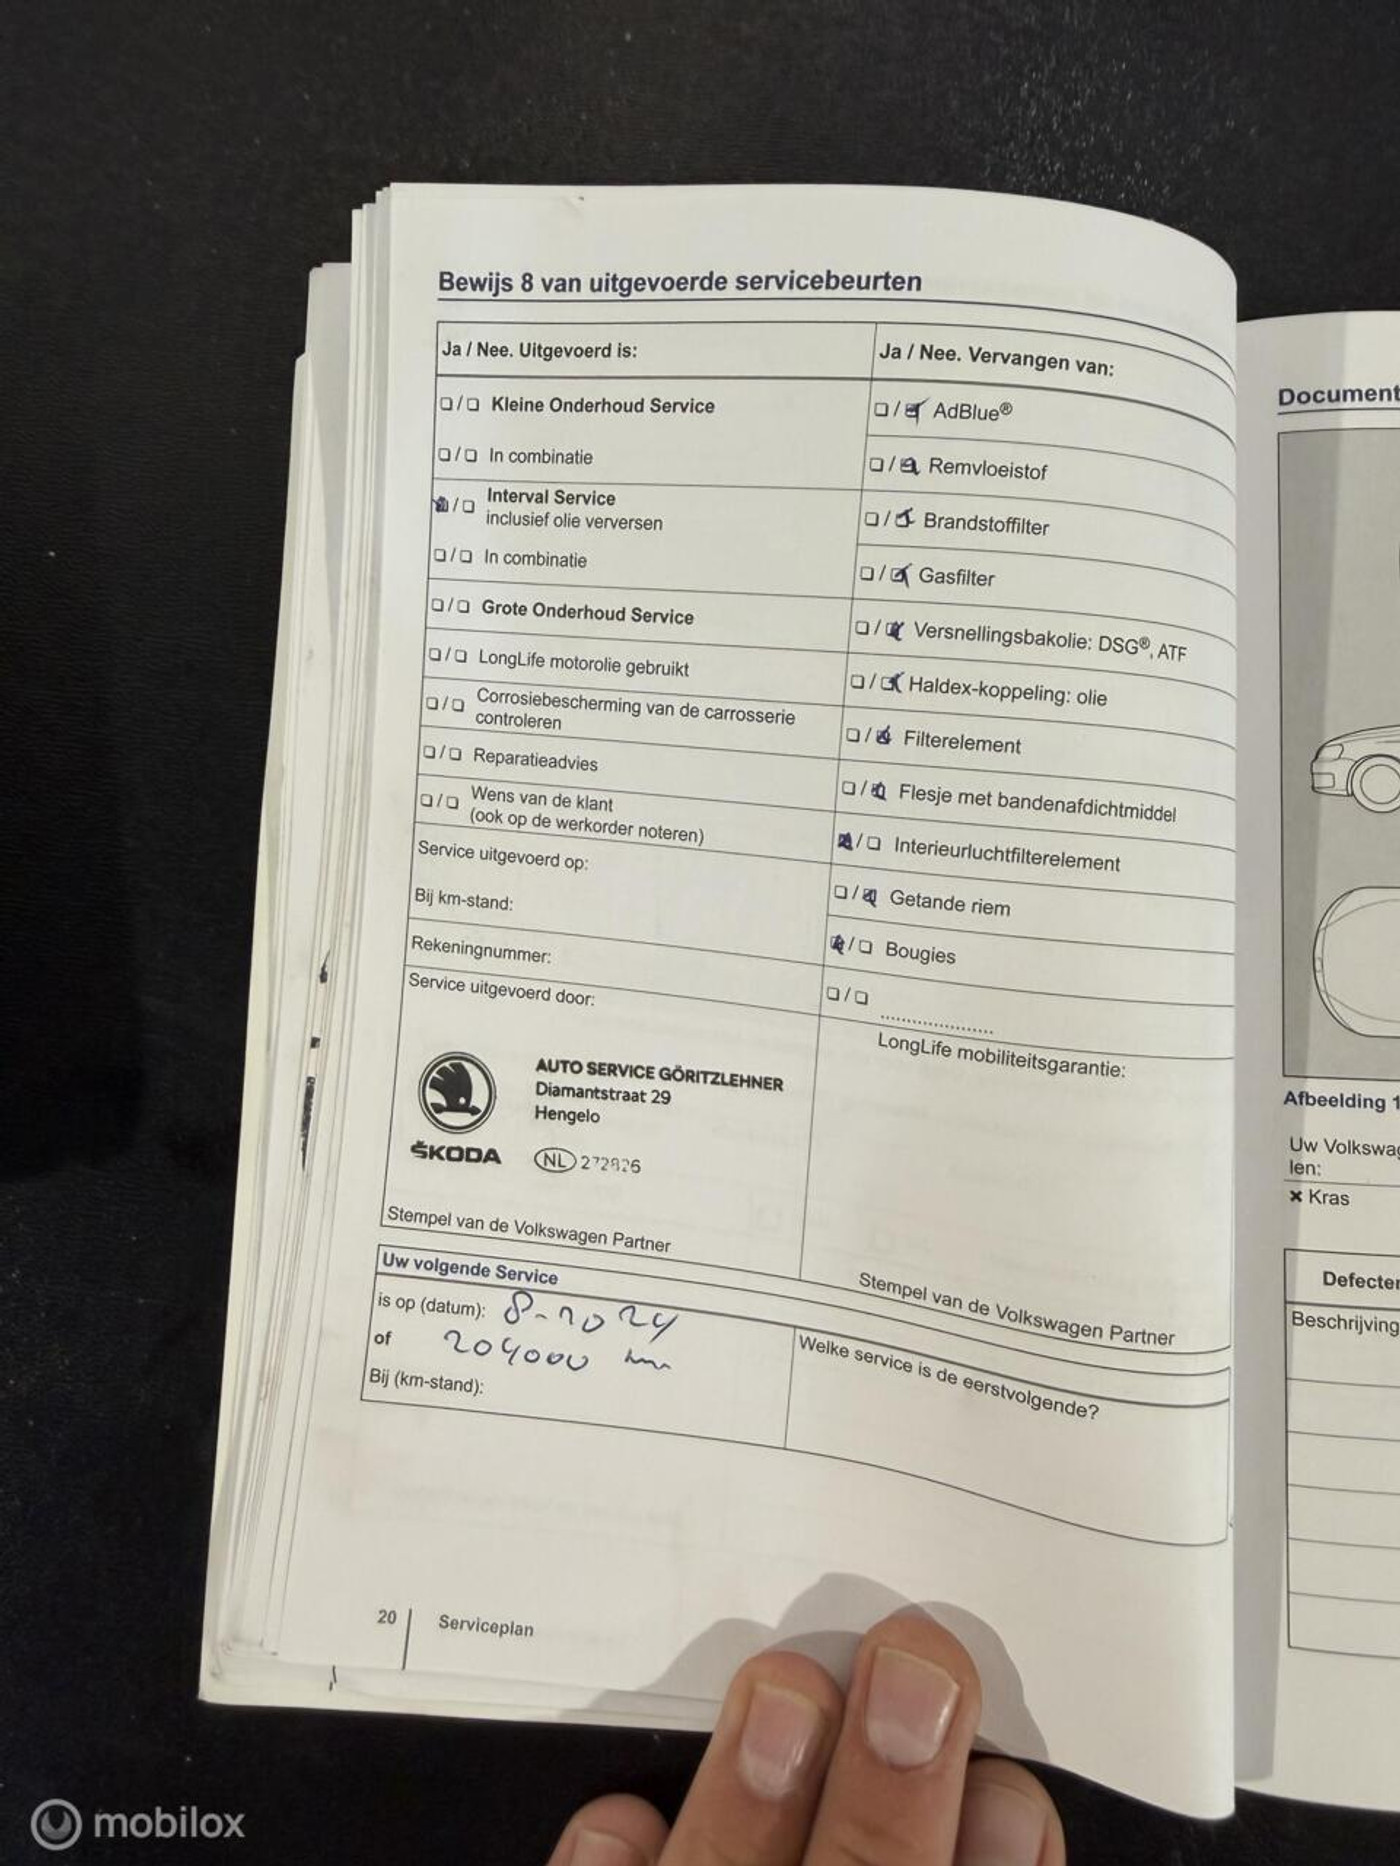 Bewijs 8 van uitgevoerde servicebeurten
Ja / Nee. Uitgevoerd is:
Kleine Onderhoud Service
In combinatie
Interval Service
inclusief olie verversen
In combinatie
Grote Onderhoud Service
LongLife motorolie gebruikt
Corrosiebescherming van de carrosserie
controleren
Reparatieadvies
Wens van de klant
(ook op de werkorder noteren)
Service uitgevoerd op:
Bij km-stand:
Rekeningnummer:
Service uitgevoerd door:
ŠKODA
AUTO SERVICE GÖRITZLEHNER
Diamantstraat 29
Hengelo
NL 272826
Stempel van de Volkswagen Partner
Ja / Nee. Vervangen van:
AdBlue®
Remvloeistof
Brandstoffilter
Gasfilter
Versnellingsbakolie: DSG®, ATF
Haldex-koppeling: olie
Filterelement
Flesje met bandenafdichtmiddel
Interieurluchtfilterelement
Getande riem
Bougies
....................
LongLife mobiliteitsgarantie:
Stempel van de Volkswagen Partner
Uw volgende Service
is op (datum): 8-2024
of 204000 km
Bij (km-stand):
Welke service is de eerstvolgende?
20
Serviceplan
Document
Afbeelding 1
Uw Volkswag
len:
× Kras
Defecten
Beschrijving
mobilox